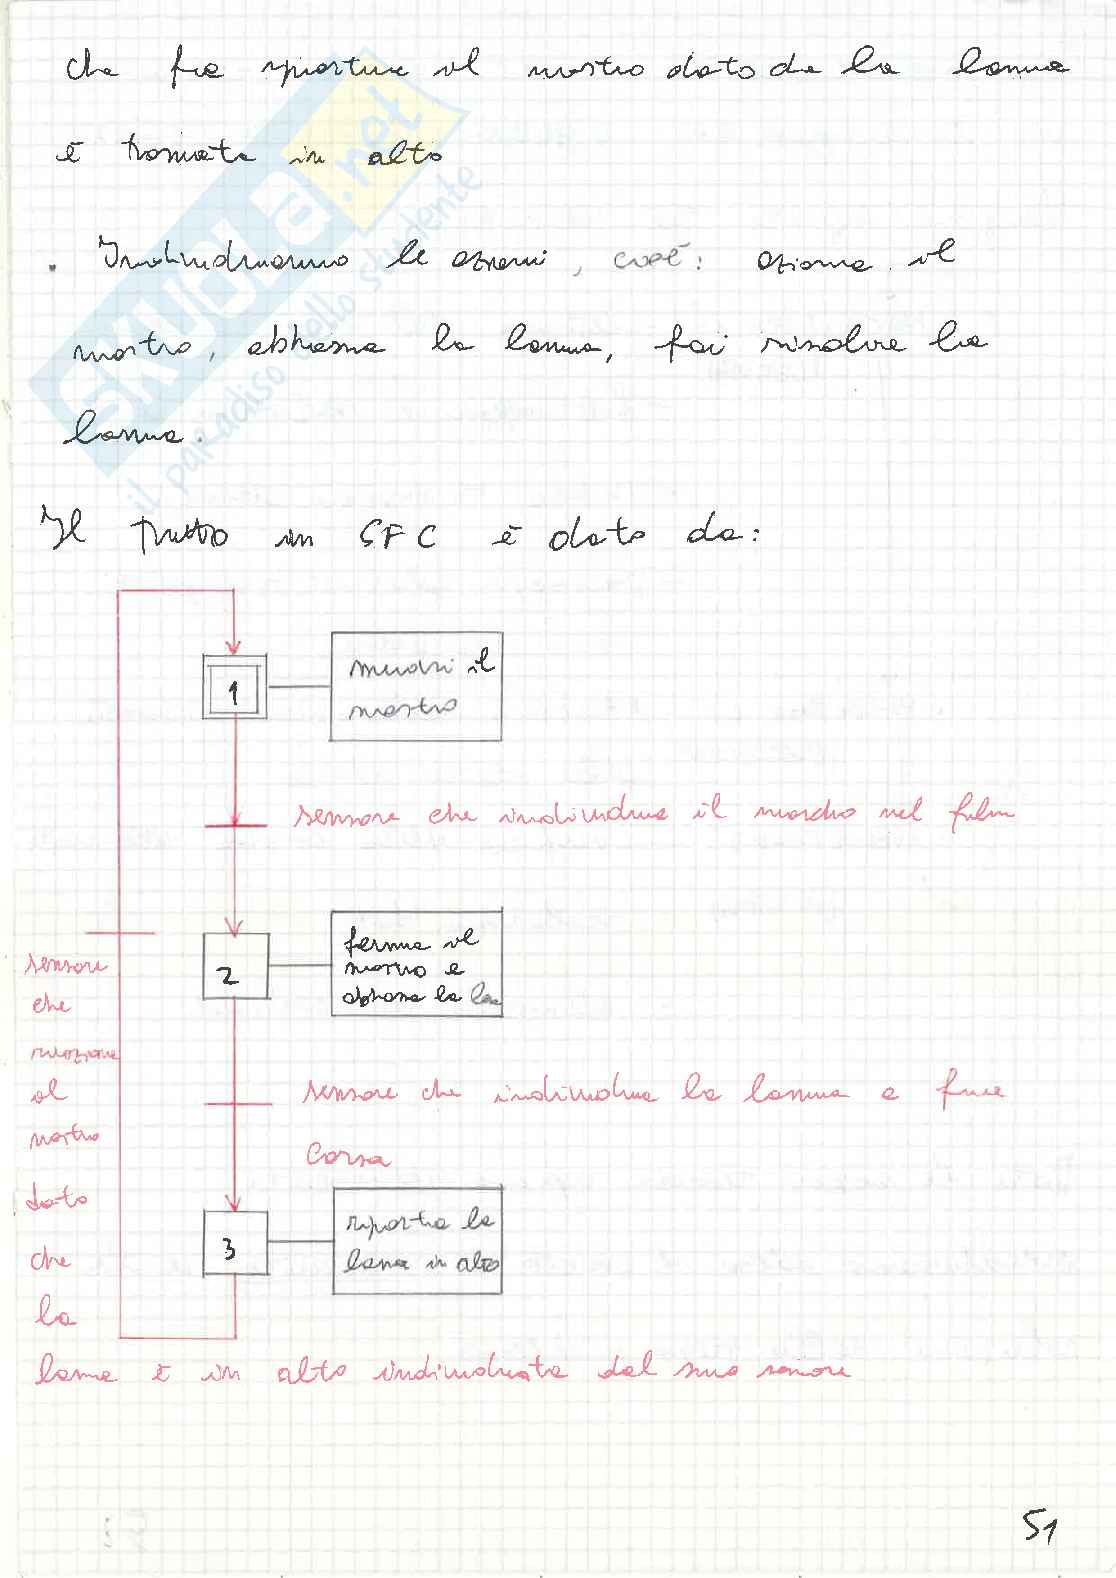 che fa ripartire il nastro dato che la lama
è tornata in alto
. Individuiamo le azioni, cioè: aziona il
nastro, abbassa la lama, fai risalire la
lama.
Il tutto in SFC è dato da:
1
muovi il
nastro
sensore che individua il marchio nel film
2
ferma il
nastro e
abbassa la la
sensore che individua la lama a fine
corsa
3
riporta la
lama in alto
sensore
che
riaziona
il
nastro
dato
che
la
lama è in alto individuata dal suo sensore
51
SKUOLA.net
il paradiso dello studente